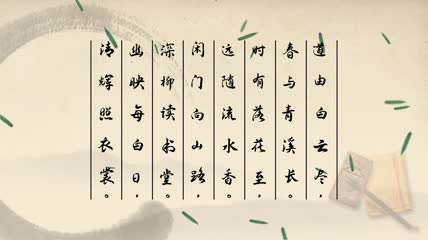 道由白云尽，
春与青溪长。
时有落花至，
远随流水香。
闲门向山路，
深柳读书堂。
幽映每白日，
清辉照衣裳。